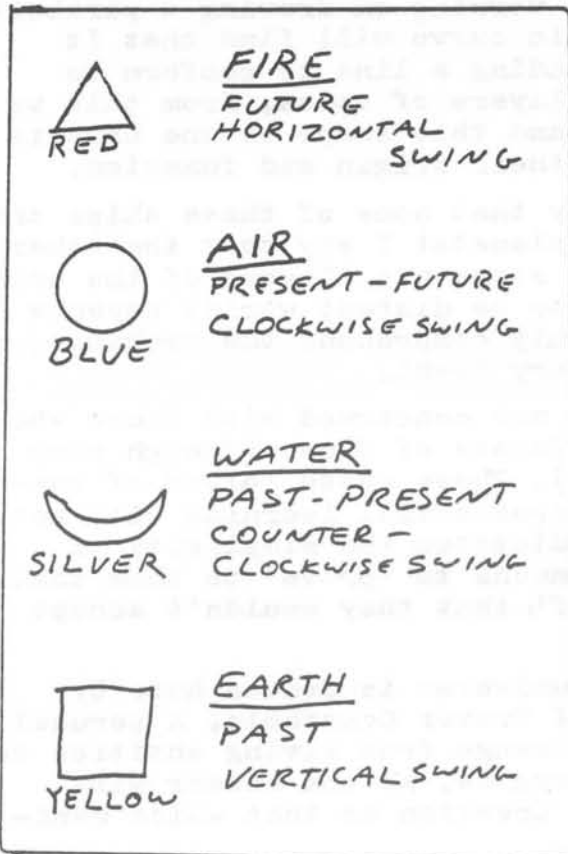 FIRE
FUTURE
HORIZONTAL
SWING
RED
AIR
PRESENT-FUTURE
CLOCKWISE SWING
BLUE
WATER
PAST-PRESENT
COUNTER-
CLOCKWISE SWING
SILVER
EARTH
PAST
VERTICAL SWING
YELLOW